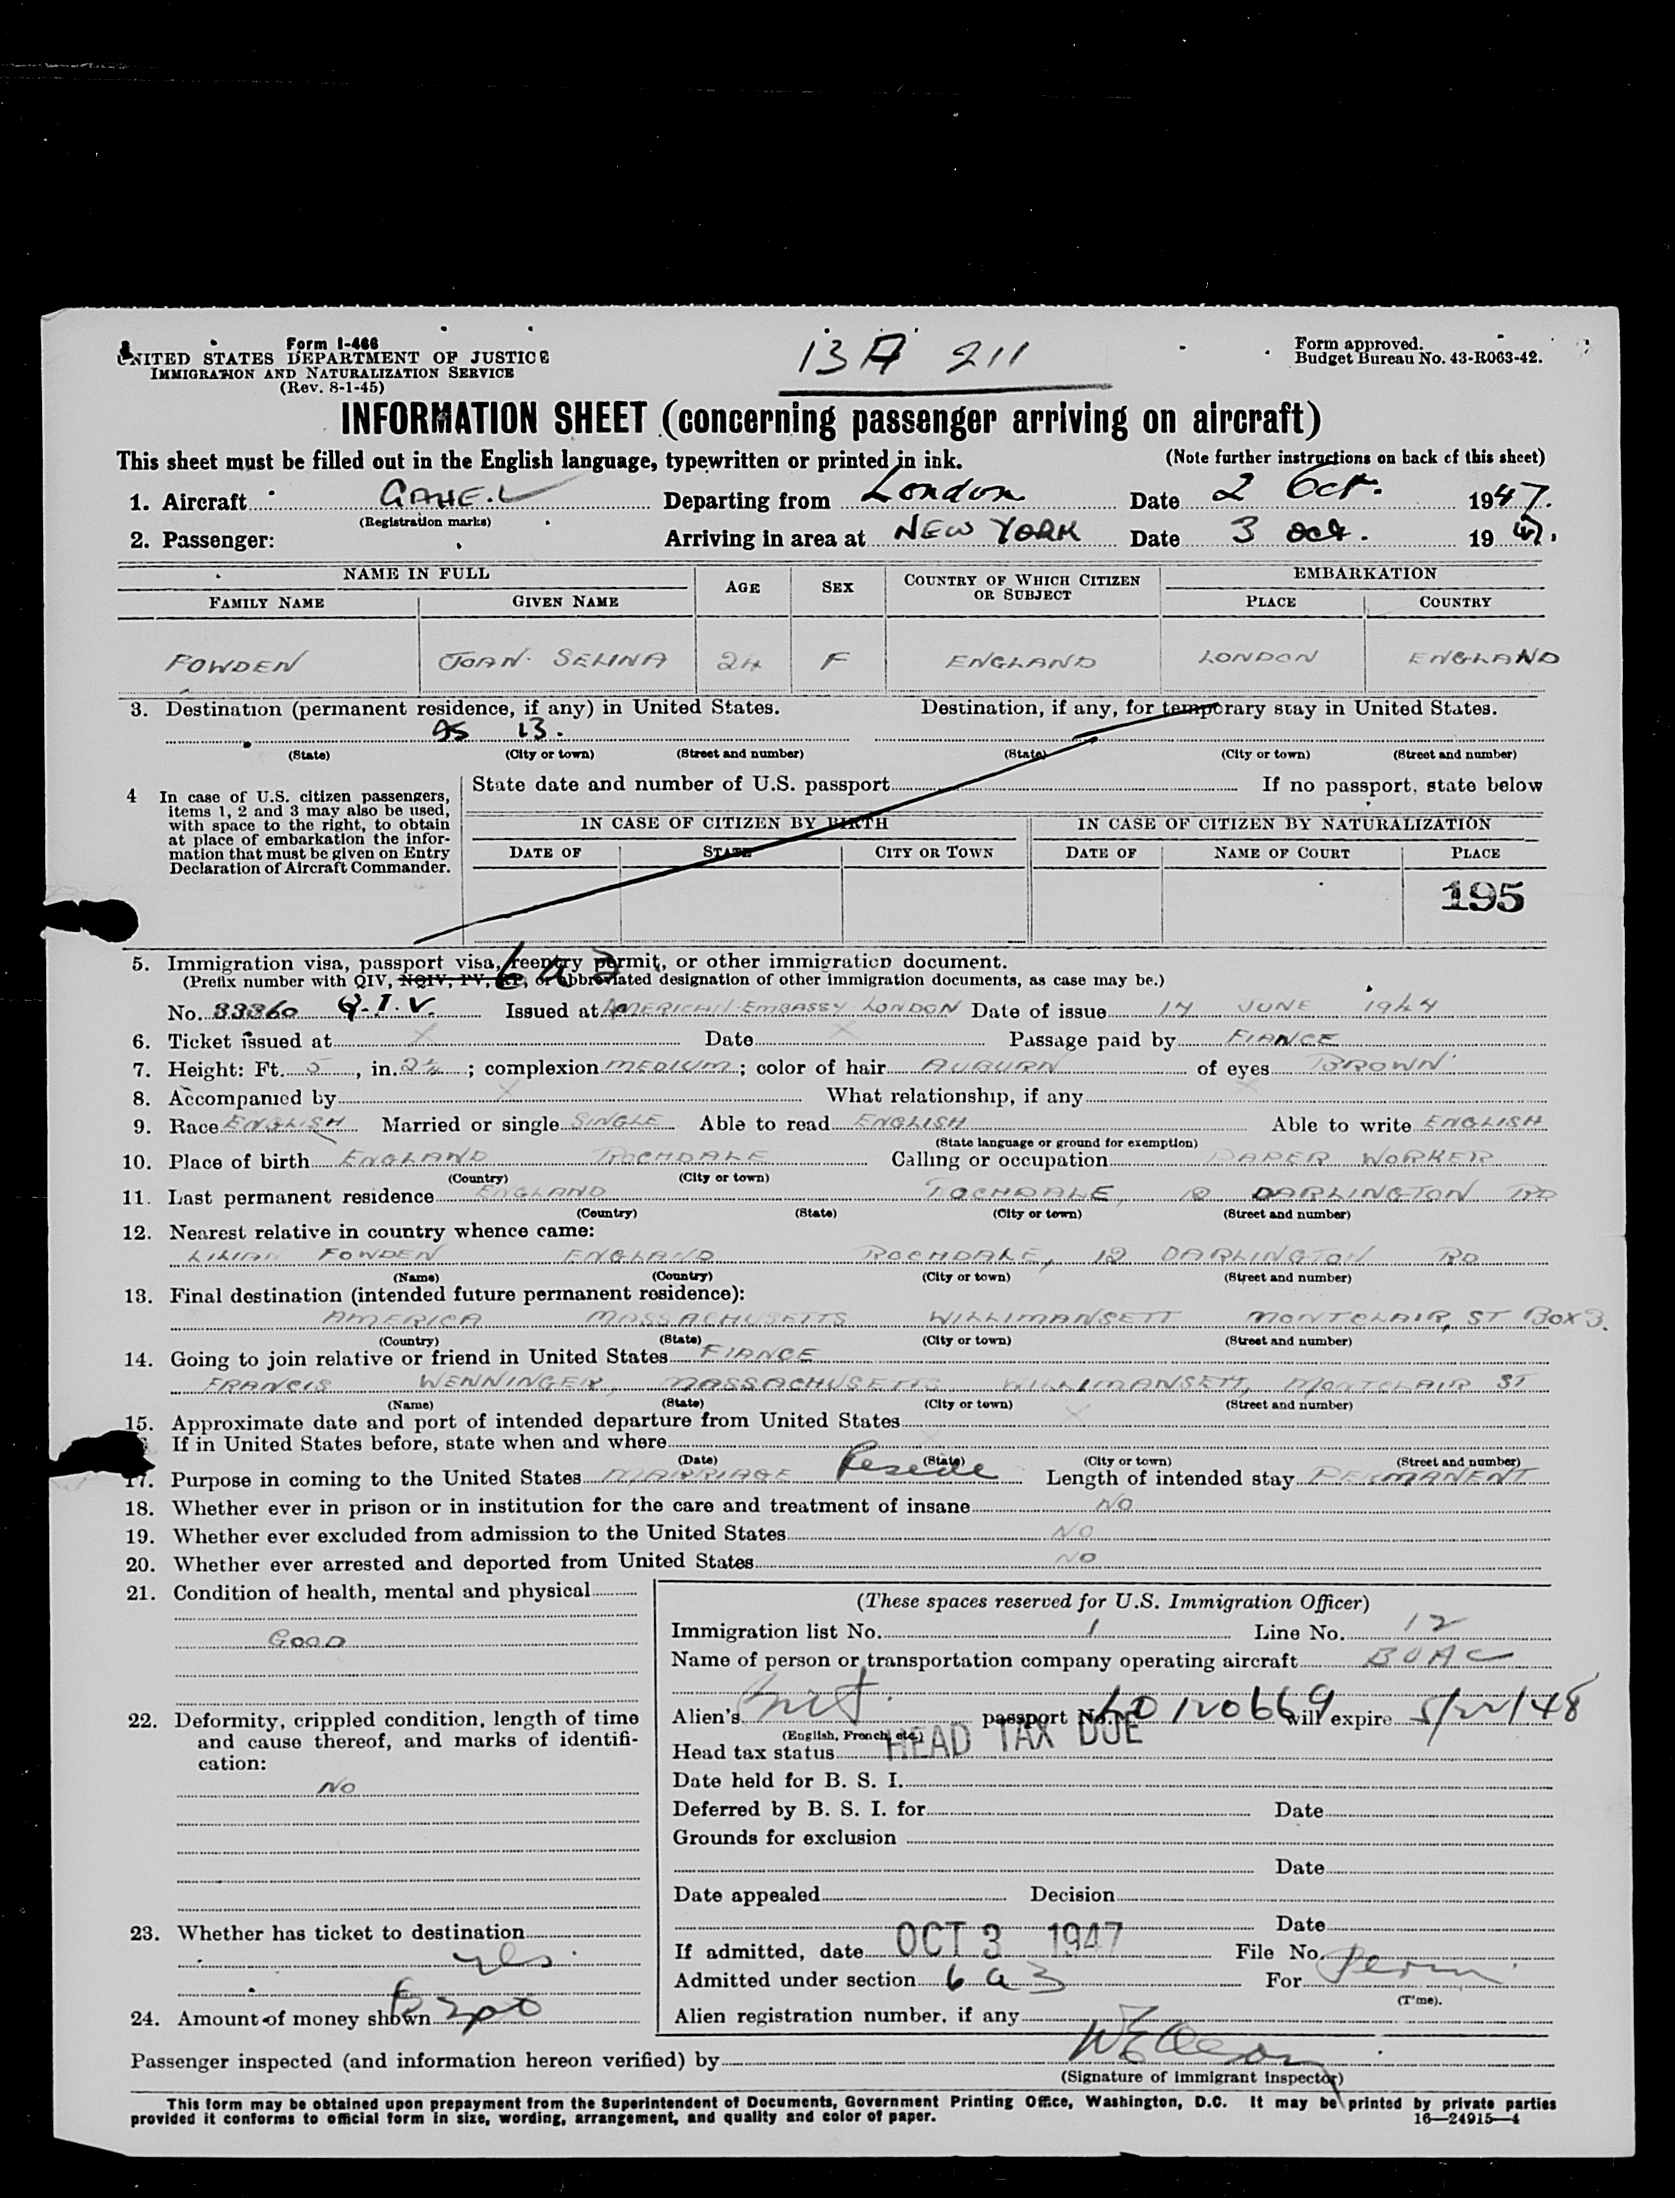 13 A 211
Form I-466
UNITED STATES DEPARTMENT OF JUSTICE
IMMIGRATION AND NATURALIZATION SERVICE
(Rev. 8-1-45)
Form approved.
Budget Bureau No. 43-R063-42.
INFORMATION SHEET (concerning passenger arriving on aircraft)
This sheet must be filled out in the English language, typewritten or printed in ink. (Note further instructions on back of this sheet)
1. Aircraft GAHE.L Departing from London Date 2 Oct. 1947.
(Registration marks)
2. Passenger: Arriving in area at NEW YORK Date 3 Oct. 1947.
NAME IN FULL AGE SEX COUNTRY OF WHICH CITIZEN OR SUBJECT EMBARKATION
FAMILY NAME GIVEN NAME PLACE COUNTRY
FOWDEN JOAN SELINA 24 F ENGLAND LONDON ENGLAND
3. Destination (permanent residence, if any) in United States. Destination, if any, for temporary stay in United States.
as 13.
(State) (City or town) (Street and number) (State) (City or town) (Street and number)
4 In case of U.S. citizen passengers, items 1, 2 and 3 may also be used, with space to the right, to obtain at place of embarkation the information that must be given on Entry Declaration of Aircraft Commander.
State date and number of U.S. passport If no passport, state below
IN CASE OF CITIZEN BY BIRTH IN CASE OF CITIZEN BY NATURALIZATION
DATE OF STATE CITY OR TOWN DATE OF NAME OF COURT PLACE
195
5. Immigration visa, passport visa, reentry permit, or other immigration document.
6 a 3
(Prefix number with QIV, NQIV, PV, RP, or abbreviated designation of other immigration documents, as case may be.)
No. 33360 Q.I.V. Issued at AMERICAN EMBASSY LONDON Date of issue 14 JUNE 1947
6. Ticket issued at X Date X Passage paid by FIANCE
7. Height: Ft. 5, in. 2½; complexion MEDIUM; color of hair AUBURN of eyes BROWN
8. Accompanied by X What relationship, if any X
9. Race ENGLISH Married or single SINGLE Able to read ENGLISH Able to write ENGLISH
(State language or ground for exemption)
10. Place of birth ENGLAND ROCHDALE Calling or occupation PAPER WORKER
(Country) (City or town)
11. Last permanent residence ENGLAND ROCHDALE, 12 DARLINGTON RD
(Country) (State) (City or town) (Street and number)
12. Nearest relative in country whence came:
LILIAN FOWDEN ENGLAND ROCHDALE, 12 DARLINGTON RD
(Name) (Country) (City or town) (Street and number)
13. Final destination (intended future permanent residence):
AMERICA MASSACHUSETTS WILLIMANSETT MONTCLAIR, ST BOX 3.
(Country) (State) (City or town) (Street and number)
14. Going to join relative or friend in United States FIANCE
FRANCIS WENNINGER, MASSACHUSETTS WILLIMANSETT, MONTCLAIR ST
(Name) (State) (City or town) (Street and number)
15. Approximate date and port of intended departure from United States X
If in United States before, state when and where X
(Date) (State) (City or town) (Street and number)
17. Purpose in coming to the United States MARRIAGE Reside Length of intended stay PERMANENT
18. Whether ever in prison or in institution for the care and treatment of insane NO
19. Whether ever excluded from admission to the United States NO
20. Whether ever arrested and deported from United States NO
21. Condition of health, mental and physical
GOOD
22. Deformity, crippled condition, length of time and cause thereof, and marks of identification:
NO
23. Whether has ticket to destination
yes
24. Amount of money shown
(These spaces reserved for U.S. Immigration Officer)
Immigration list No. 1 Line No. 12
Name of person or transportation company operating aircraft BOAC
Alien's Brit. passport No. L0120669 will expire 5/22/48
(English, French, etc.)
Head tax status HEAD TAX DUE
Date held for B. S. I.
Deferred by B. S. I. for Date
Grounds for exclusion
Date
Date appealed Decision
Date
If admitted, date OCT 3 1947 File No.
Admitted under section 6 a 3 For Perm.
(Time).
Alien registration number, if any
Passenger inspected (and information hereon verified) by
(Signature of immigrant inspector)
This form may be obtained upon prepayment from the Superintendent of Documents, Government Printing Office, Washington, D.C. It may be printed by private parties
provided it conforms to official form in size, wording, arrangement, and quality and color of paper. 16—24915—4